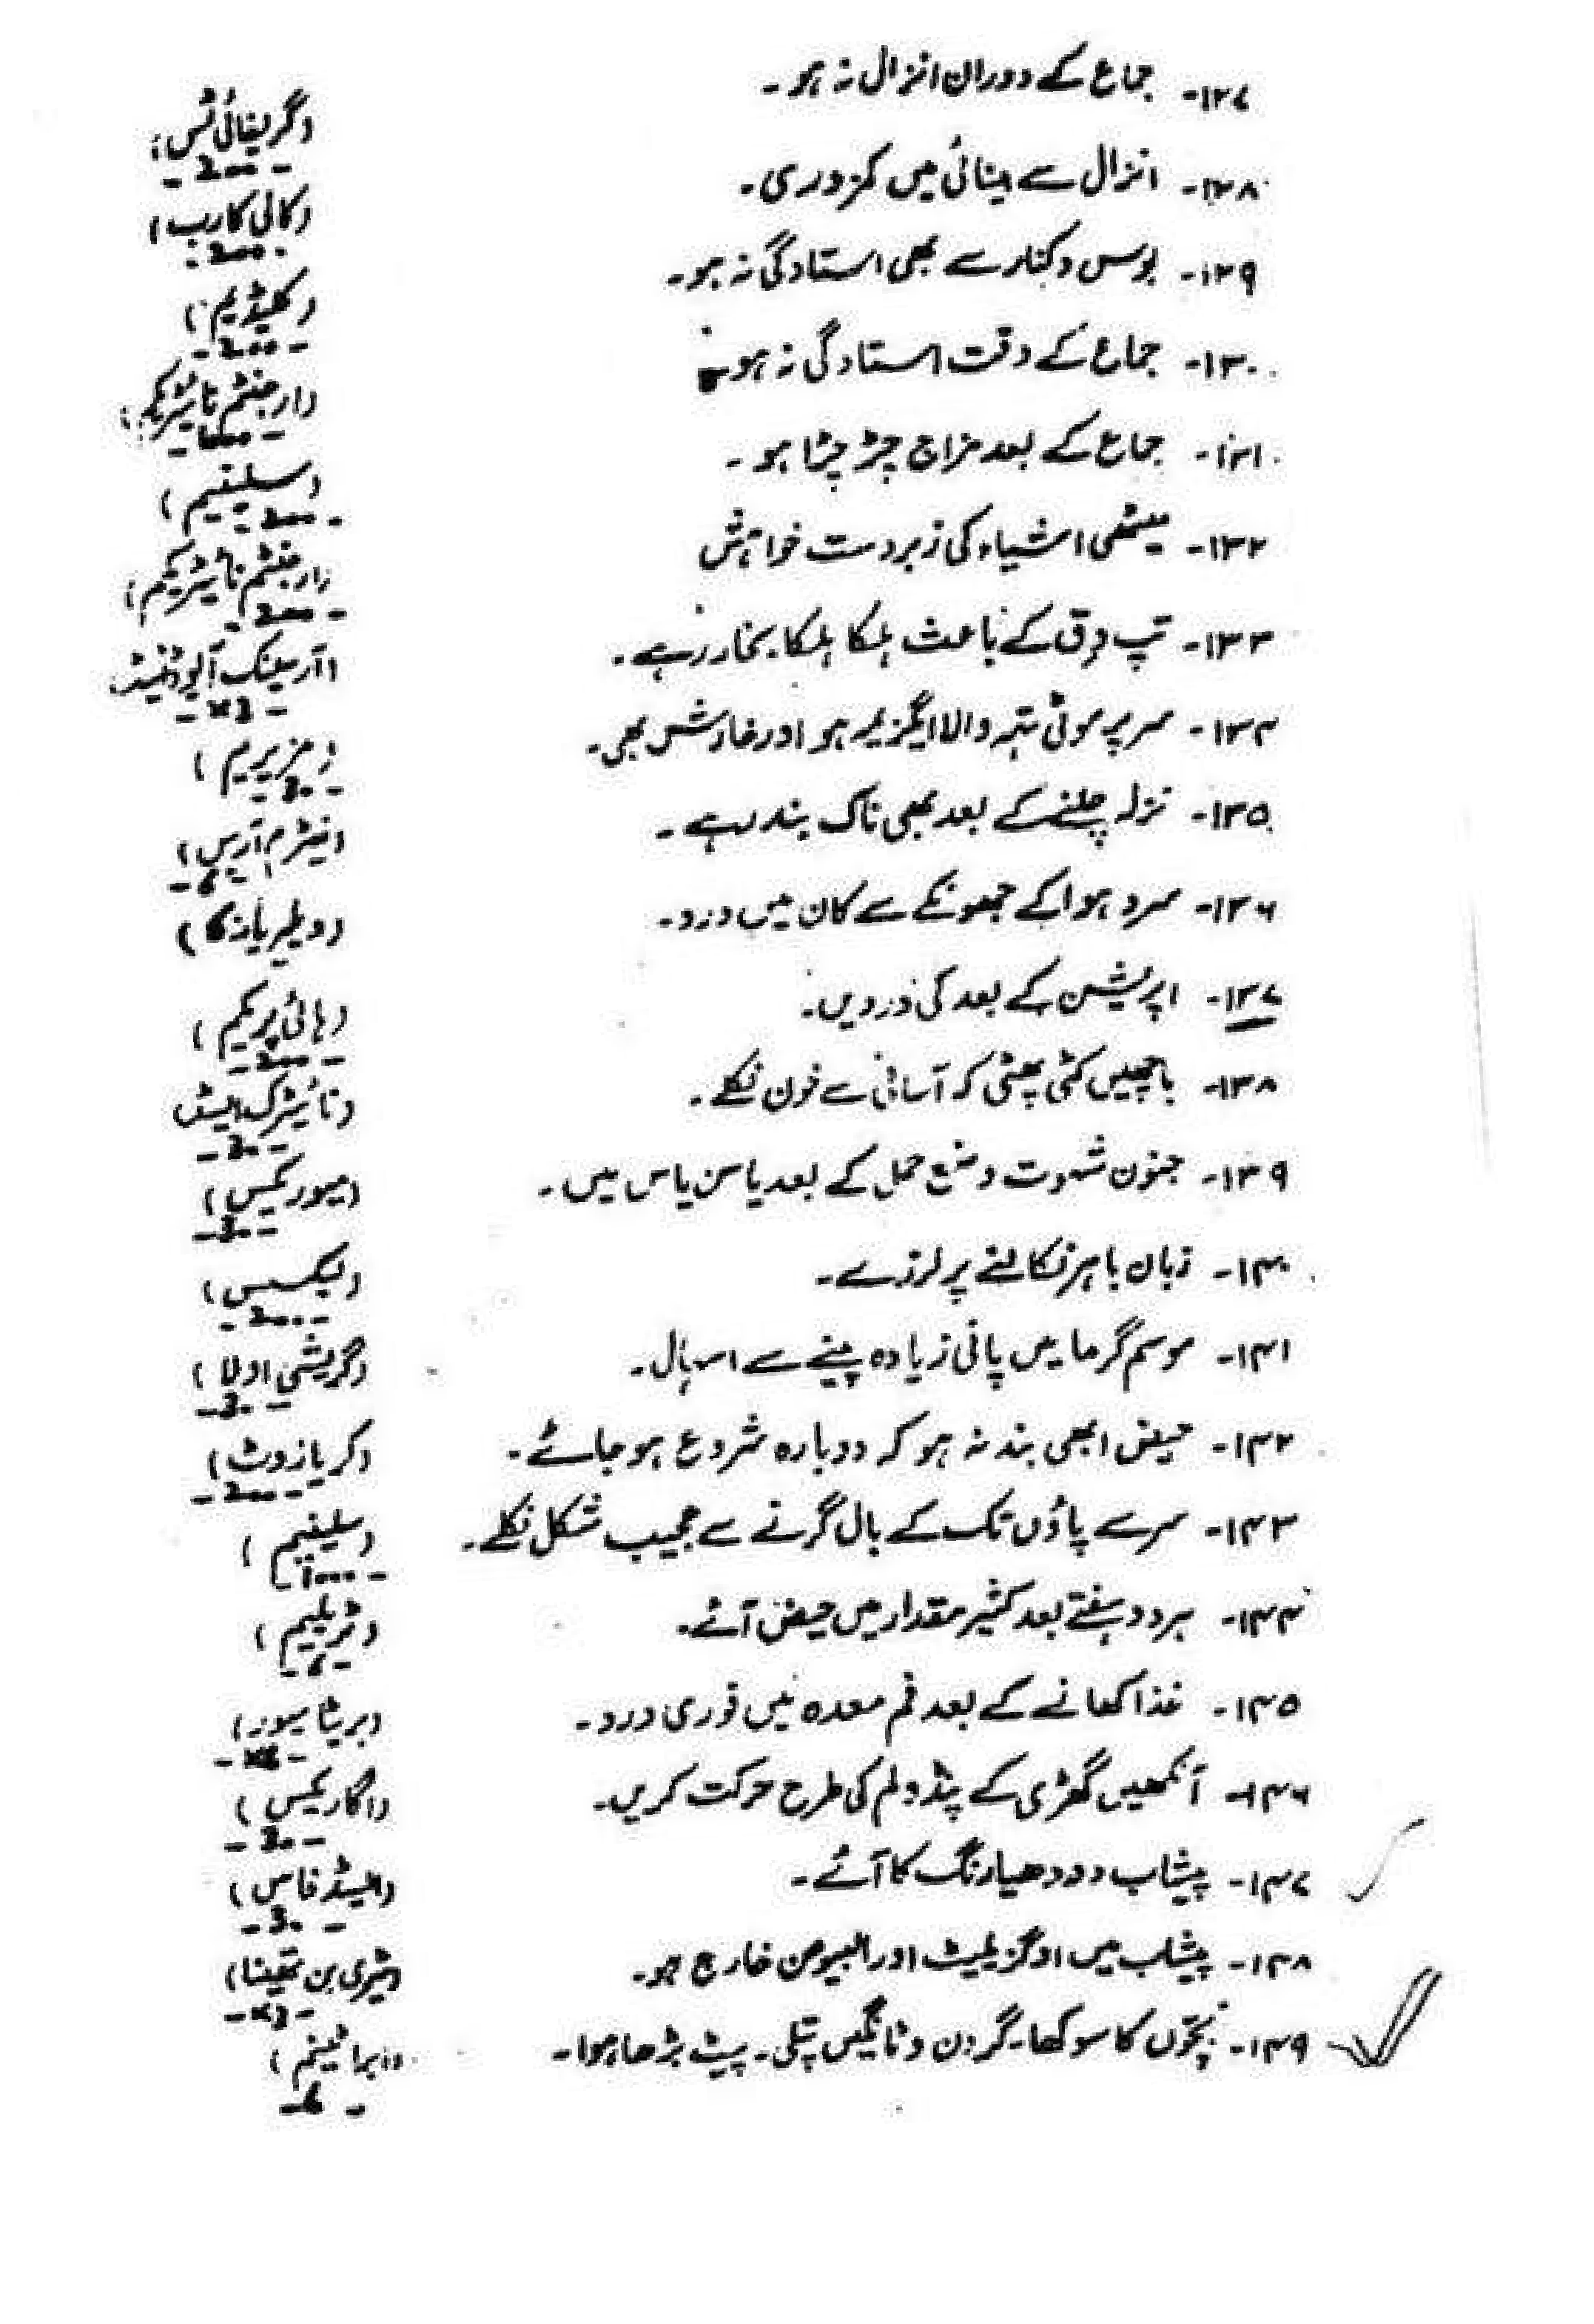 ۱۲۷- جماع کے دوران انزال نہ ہو۔ (گریفائٹس)
-200-
۱۲۸- انزال سے بینائی میں کمزوری۔ (کالی کارب)
-200-
۱۲۹- بوس وکنار سے بھی استادگی نہ ہو۔ (کلیڈیم)
-200-
۱۳۰- جماع کے وقت استادگی نہ ہو۔ (ارجنٹم نائیٹریکم)
۱۳۱- جماع کے بعد مزاج چڑچڑا ہو۔ (سلینیم)
-200-
۱۳۲- میٹھی اشیاء کی زبردست خواہش (ارجنٹم نائیٹریکم)
-200-
۱۳۳- تپ دق کے باعث ہلکا ہلکا بخار رہے۔ (آرسینک آئیوڈئیڈ)
-3x-
۱۳۴- سر پر موٹی تہہ والا ایگزیمہ ہو اور خارش بھی۔ (مزیریم)
-30-
۱۳۵- نزلہ چلنے کے بعد بھی ناک بند رہے۔ (نیٹرم آرس)
-6-
۱۳۶- سرد ہوا کے جھونکے سے کان میں درد۔ (ویلیریانہ)
۱۳۷- اپریشن کے بعد کی دردیں۔ (ہائی پریکم)
-200-
۱۳۸- باچھیں کٹی پھٹی کہ آسانی سے خون نکلے۔ (نائیٹرک ایسڈ
-30-
۱۳۹- جنون شہوت وضع حمل کے بعد یا سن یاس میں۔ (میورکس)
-30-
۱۴۰- زبان باہر نکالنے پر لرزے۔ (لیکسس)
-200-
۱۴۱- موسم گرما میں پانی زیادہ پینے سے اسہال۔ (گریشی اولا)
-30-
۱۴۲- حیض ابھی بند نہ ہو کہ دوبارہ شروع ہو جائے۔ (کریازوٹ)
-200-
۱۴۳- سر سے پاؤں تک کے بال گرنے سے عجیب شکل نکلے۔ (سلینیم)
-1000-
۱۴۴- ہر دو ہفتے بعد کثیر مقدار میں حیض آئے۔ (ٹریلیم)
-6-
۱۴۵- غذا کھانے کے بعد فم معدہ میں فوری درد۔ (بریٹا میور)
۱۴۶- آنکھیں گھڑی کے پنڈولم کی طرح حرکت کریں۔ (اگاریکس)
-30-
۱۴۷- پیشاب دودھیا رنگ کا آئے۔ (ایسڈ فاس)
-30-
۱۴۸- پیشاب میں اوگزیلیٹ اور البیومن خارج ہو۔ (ٹیری بن تھینا)
-3x-
۱۴۹- بچوں کا سوکھا۔ گردن و ٹانگیں پتلی۔ پیٹ بڑھا ہوا۔ (ابراٹینم)
-6-